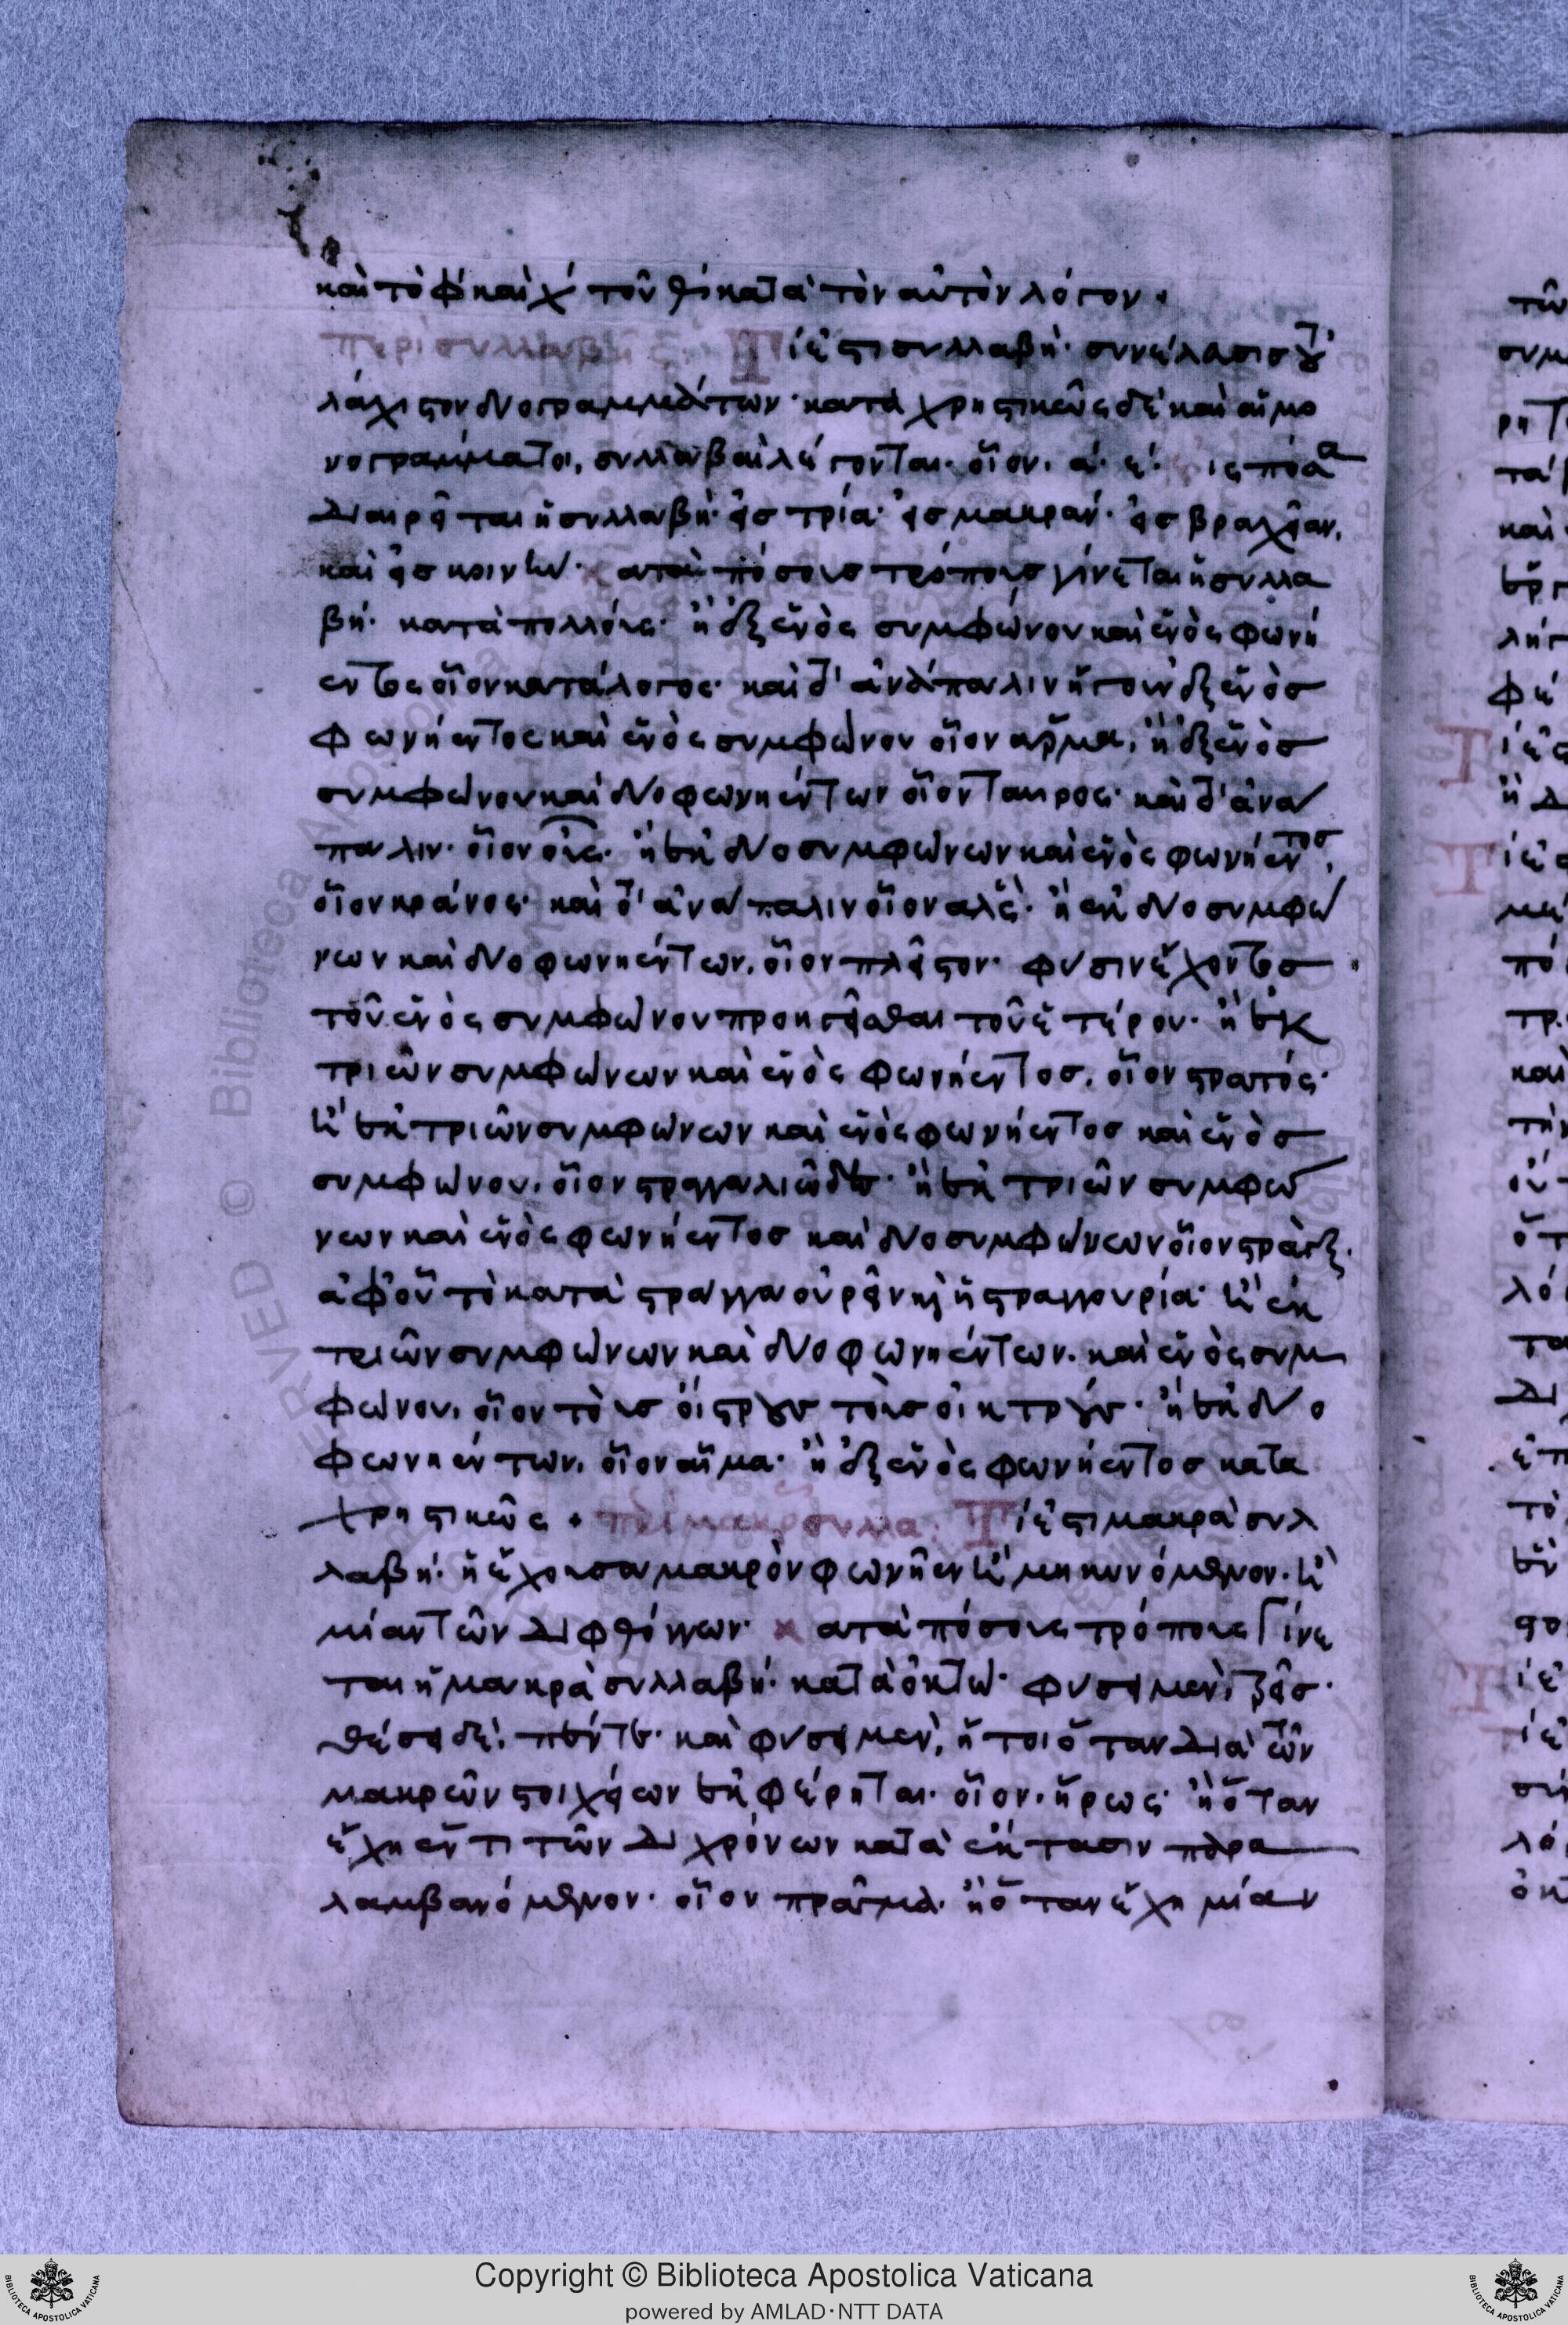 καὶ τὸ φ καὶ χ τοῦ θ κατὰ τὸν αὐτὸν λόγον.
περὶ συλλαβῆς. Τί ἐστι συλλαβή· συνέλασις τοὐ
λάχιστον δυο γραμμάτων· καταχρηστικῶς δὲ καὶ αἱ μο
νογράμματοι, συλλαβαὶ λέγονται· οἷον. ἀ. ἐ. εἰς πόσα
διαιρεῖται ἡ συλλαβή· εἰς τρία· εἰς μακράν· εἰς βραχεῖαν,
καὶ εἰς κοινήν· κατὰ πόσους τρόπους γίνεται ἡ συλλα
βή· κατὰ πολλούς· ἢ ἐξ ἑνὸς συμφώνου καὶ ἑνὸς φωνή
εντος οἷον κατάλογος· καὶ τ' ἀνάπαλιν ἤγουν ἐξ ἑνὸς
φωνήεντος καὶ ἑνὸς συμφώνου οἷον ἅρμα, ἢ ἐξ ἑνὸς
συμφώνου καὶ δυο φωνηέντων οἷον ταιρος· καὶ τ' ἀνά
παλιν· οἷον οἷς· ἢ ἐκ δυο συμφώνων καὶ ἑνὸς φωνήεντος,
οἷον κράνος· καὶ τ' ἀνάπαλιν οἷον ἁλς· ἢ ἐκ δυο συμφώ
νων καὶ δυο φωνηέντων, οἷον πλεῖστον· φύσιν ἔχοντος
τοῦ ἑνὸς συμφώνου προηγεῖσθαι τοῦ ἑτέρου· ἢ ἐκ
τριῶν συμφώνων καὶ ἑνὸς φωνήεντος, οἷον στρατός·
ἢ ἐκ τριῶν συμφώνων καὶ ἑνὸς φωνήεντος καὶ ἑνὸς
συμφώνου, οἷον στραγγαλιώδης· ἢ ἐκ τριῶν συμφώ
νων καὶ ἑνὸς φωνήεντος καὶ δυο συμφώνων οἷον στράγξ.
ἀφ' οὗ τὸ κατὰ στράγγα οὐρεῖν καὶ ἡ στραγγουρία· ἢ ἐκ
τριῶν συμφώνων καὶ δυο φωνηέντων. καὶ ἑνὸς συμ
φώνου, οἷον τοὺς οἴστρους τοὺς οἰκτρούς· ἢ ἐκ δυο
φωνηέντων, οἷον αἷμα· ἢ ἐξ ἑνὸς φωνήεντος κατα
χρηστικῶς. περὶ μακρᾶς συλλα. Τί ἐστι μακρὰ συλ
λαβή· ἡ ἔχουσα μακρὸν φωνῆεν ἢ μηκυνόμενον. ἢ
μίαν τῶν διφθόγγων· κατὰ πόσους τρόπους γίνε
ται ἡ μακρὰ συλλαβή· κατὰ ὀκτώ· φύσει μὲν, τρεῖς·
θέσει δὲ, πέντε· καὶ φύσει μὲν, ἤτοι ὅταν διὰ τῶν
μακρῶν στοιχείων ἐκφέρηται· οἷον. ἥρως· ἢ ὅταν
ἔχη ἕν τι τῶν διχρόνων κατὰ ἔκτασιν παρα
λαμβανόμενον· οἷον πρᾶγμα· ἢ ὅταν ἔχη μίαν